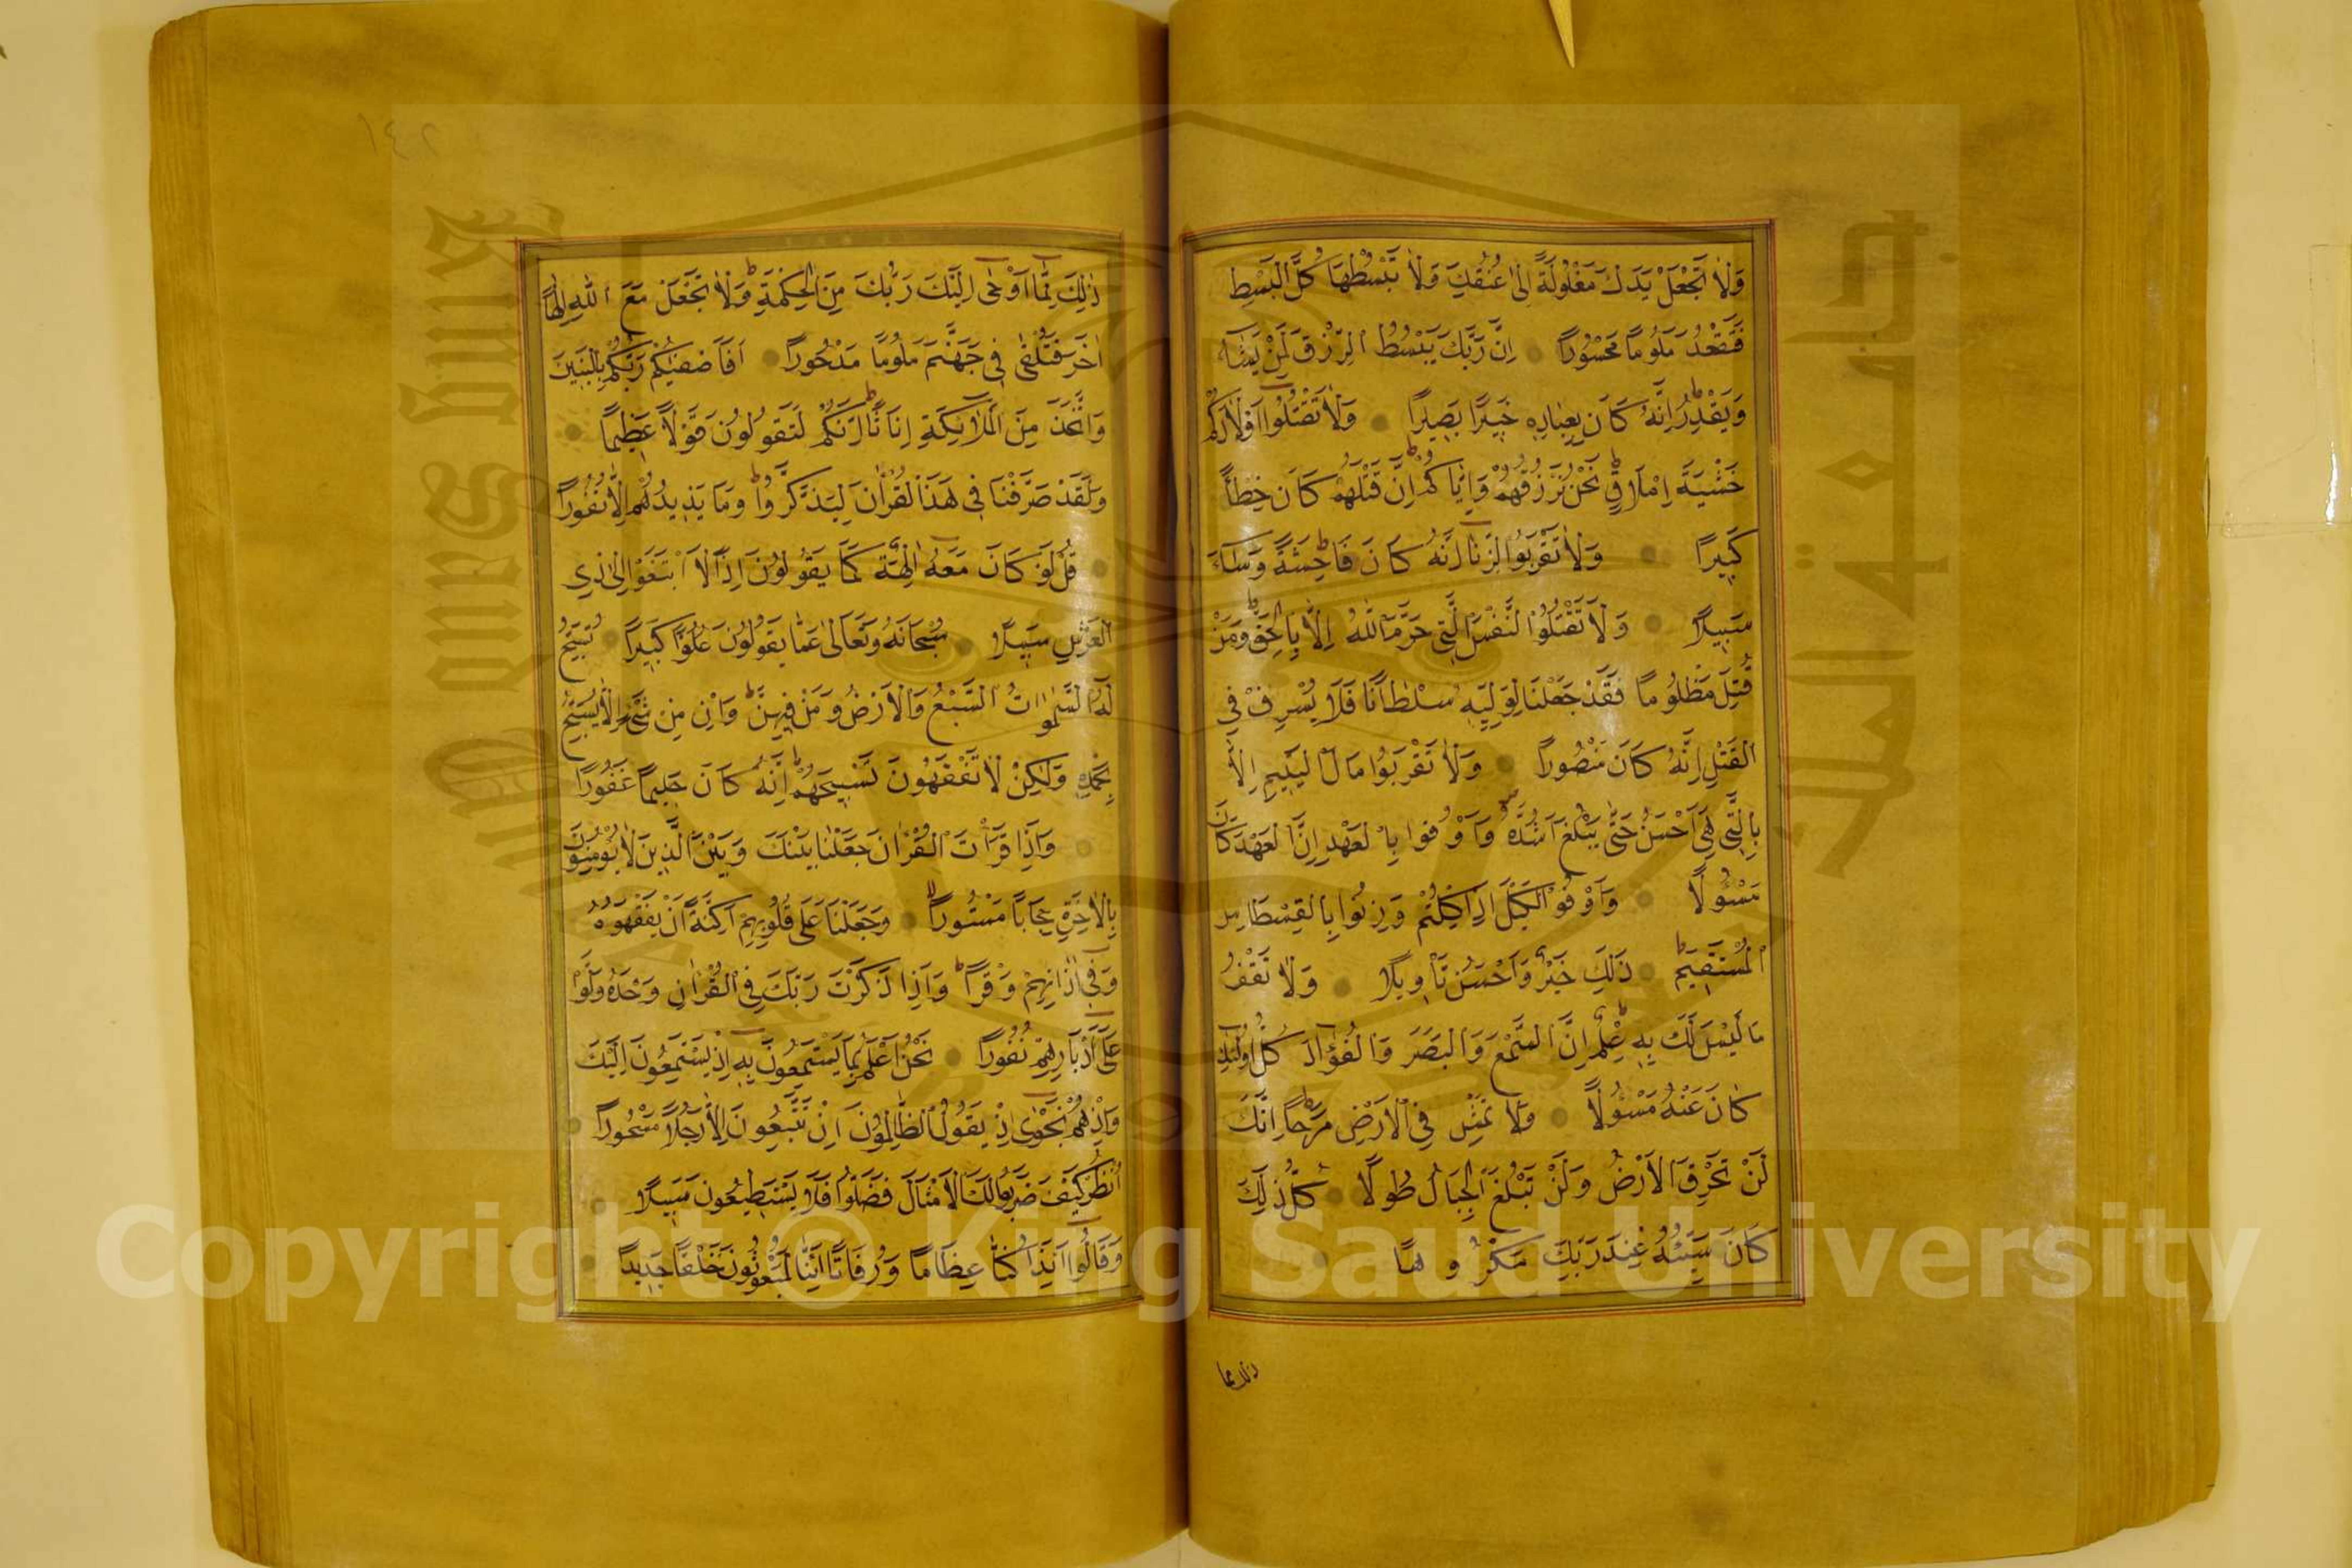 وَلَا تَجْعَلْ يَدَكَ مَغْلُولَةً اِلٰى عُنُقِكَ وَلَا تَبْسُطْهَا كُلَّ الْبَسْطِ
فَتَقْعُدَ مَلُومًا مَحْسُورًا اِنَّ رَبَّكَ يَبْسُطُ الرِّزْقَ لِمَنْ يَشَاءُ
وَيَقْدِرُ اِنَّهُ كَانَ بِعِبَادِهِ خَبِيرًا بَصِيرًا وَلَا تَقْتُلُوا اَوْلَادَكُمْ
خَشْيَةَ اِمْلَاقٍ نَحْنُ نَرْزُقُهُمْ وَاِيَّاكُمْ اِنَّ قَتْلَهُمْ كَانَ خِطْأً
كَبِيرًا وَلَا تَقْرَبُوا الزِّنَا اِنَّهُ كَانَ فَاحِشَةً وَسَاءَ
سَبِيلًا وَلَا تَقْتُلُوا النَّفْسَ الَّتِى حَرَّمَ اللّٰهُ اِلَّا بِالْحَقِّ وَمَنْ
قُتِلَ مَظْلُومًا فَقَدْ جَعَلْنَا لِوَلِيِّهِ سُلْطَانًا فَلَا يُسْرِفْ فِى
الْقَتْلِ اِنَّهُ كَانَ مَنْصُورًا وَلَا تَقْرَبُوا مَالَ الْيَتِيمِ اِلَّا
بِالَّتِى هِىَ اَحْسَنُ حَتّٰى يَبْلُغَ اَشُدَّهُ وَاَوْفُوا بِالْعَهْدِ اِنَّ الْعَهْدَ كَانَ
مَسْئُولًا وَاَوْفُوا الْكَيْلَ اِذَا كِلْتُمْ وَزِنُوا بِالْقِسْطَاسِ
الْمُسْتَقِيمِ ذٰلِكَ خَيْرٌ وَاَحْسَنُ تَاْوِيلًا وَلَا تَقْفُ
مَا لَيْسَ لَكَ بِهِ عِلْمٌ اِنَّ السَّمْعَ وَالْبَصَرَ وَالْفُؤَادَ كُلُّ اُولٰئِكَ
كَانَ عَنْهُ مَسْئُولًا وَلَا تَمْشِ فِى الْاَرْضِ مَرَحًا اِنَّكَ
لَنْ تَخْرِقَ الْاَرْضَ وَلَنْ تَبْلُغَ الْجِبَالَ طُولًا كُلُّ ذٰلِكَ
كَانَ سَيِّئُهُ عِنْدَ رَبِّكَ مَكْرُوهًا
ذلك مما
١٤٢
ذٰلِكَ مِمَّا اَوْحٰى اِلَيْكَ رَبُّكَ مِنَ الْحِكْمَةِ وَلَا تَجْعَلْ مَعَ اللّٰهِ اِلٰهًا
اٰخَرَ فَتُلْقٰى فِى جَهَنَّمَ مَلُومًا مَدْحُورًا اَفَاَصْفٰيكُمْ رَبُّكُمْ بِالْبَنِينَ
وَاتَّخَذَ مِنَ الْمَلٰئِكَةِ اِنَاثًا اِنَّكُمْ لَتَقُولُونَ قَوْلًا عَظِيمًا
وَلَقَدْ صَرَّفْنَا فِى هٰذَا الْقُرْاٰنِ لِيَذَّكَّرُوا وَمَا يَزِيدُهُمْ اِلَّا نُفُورًا
قُلْ لَوْ كَانَ مَعَهُ اٰلِهَةٌ كَمَا يَقُولُونَ اِذًا لَابْتَغَوْا اِلٰى ذِى
الْعَرْشِ سَبِيلًا سُبْحَانَهُ وَتَعَالٰى عَمَّا يَقُولُونَ عُلُوًّا كَبِيرًا تُسَبِّحُ
لَهُ السَّمٰوَاتُ السَّبْعُ وَالْاَرْضُ وَمَنْ فِيهِنَّ وَاِنْ مِنْ شَىْءٍ اِلَّا يُسَبِّحُ
بِحَمْدِهِ وَلٰكِنْ لَا تَفْقَهُونَ تَسْبِيحَهُمْ اِنَّهُ كَانَ حَلِيمًا غَفُورًا
وَاِذَا قَرَاْتَ الْقُرْاٰنَ جَعَلْنَا بَيْنَكَ وَبَيْنَ الَّذِينَ لَا يُؤْمِنُونَ
بِالْاٰخِرَةِ حِجَابًا مَسْتُورًا وَجَعَلْنَا عَلٰى قُلُوبِهِمْ اَكِنَّةً اَنْ يَفْقَهُوهُ
وَفِى اٰذَانِهِمْ وَقْرًا وَاِذَا ذَكَرْتَ رَبَّكَ فِى الْقُرْاٰنِ وَحْدَهُ وَلَّوْا
عَلٰى اَدْبَارِهِمْ نُفُورًا نَحْنُ اَعْلَمُ بِمَا يَسْتَمِعُونَ بِهِ اِذْ يَسْتَمِعُونَ اِلَيْكَ
وَاِذْ هُمْ نَجْوٰى اِذْ يَقُولُ الظَّالِمُونَ اِنْ تَتَّبِعُونَ اِلَّا رَجُلًا مَسْحُورًا
اُنْظُرْ كَيْفَ ضَرَبُوا لَكَ الْاَمْثَالَ فَضَلُّوا فَلَا يَسْتَطِيعُونَ سَبِيلًا
وَقَالُوا ءَاِذَا كُنَّا عِظَامًا وَرُفَاتًا ءَاِنَّا لَمَبْعُوثُونَ خَلْقًا جَدِيدًا
Copyright © King Saud University
جامعة الملك
King Saud